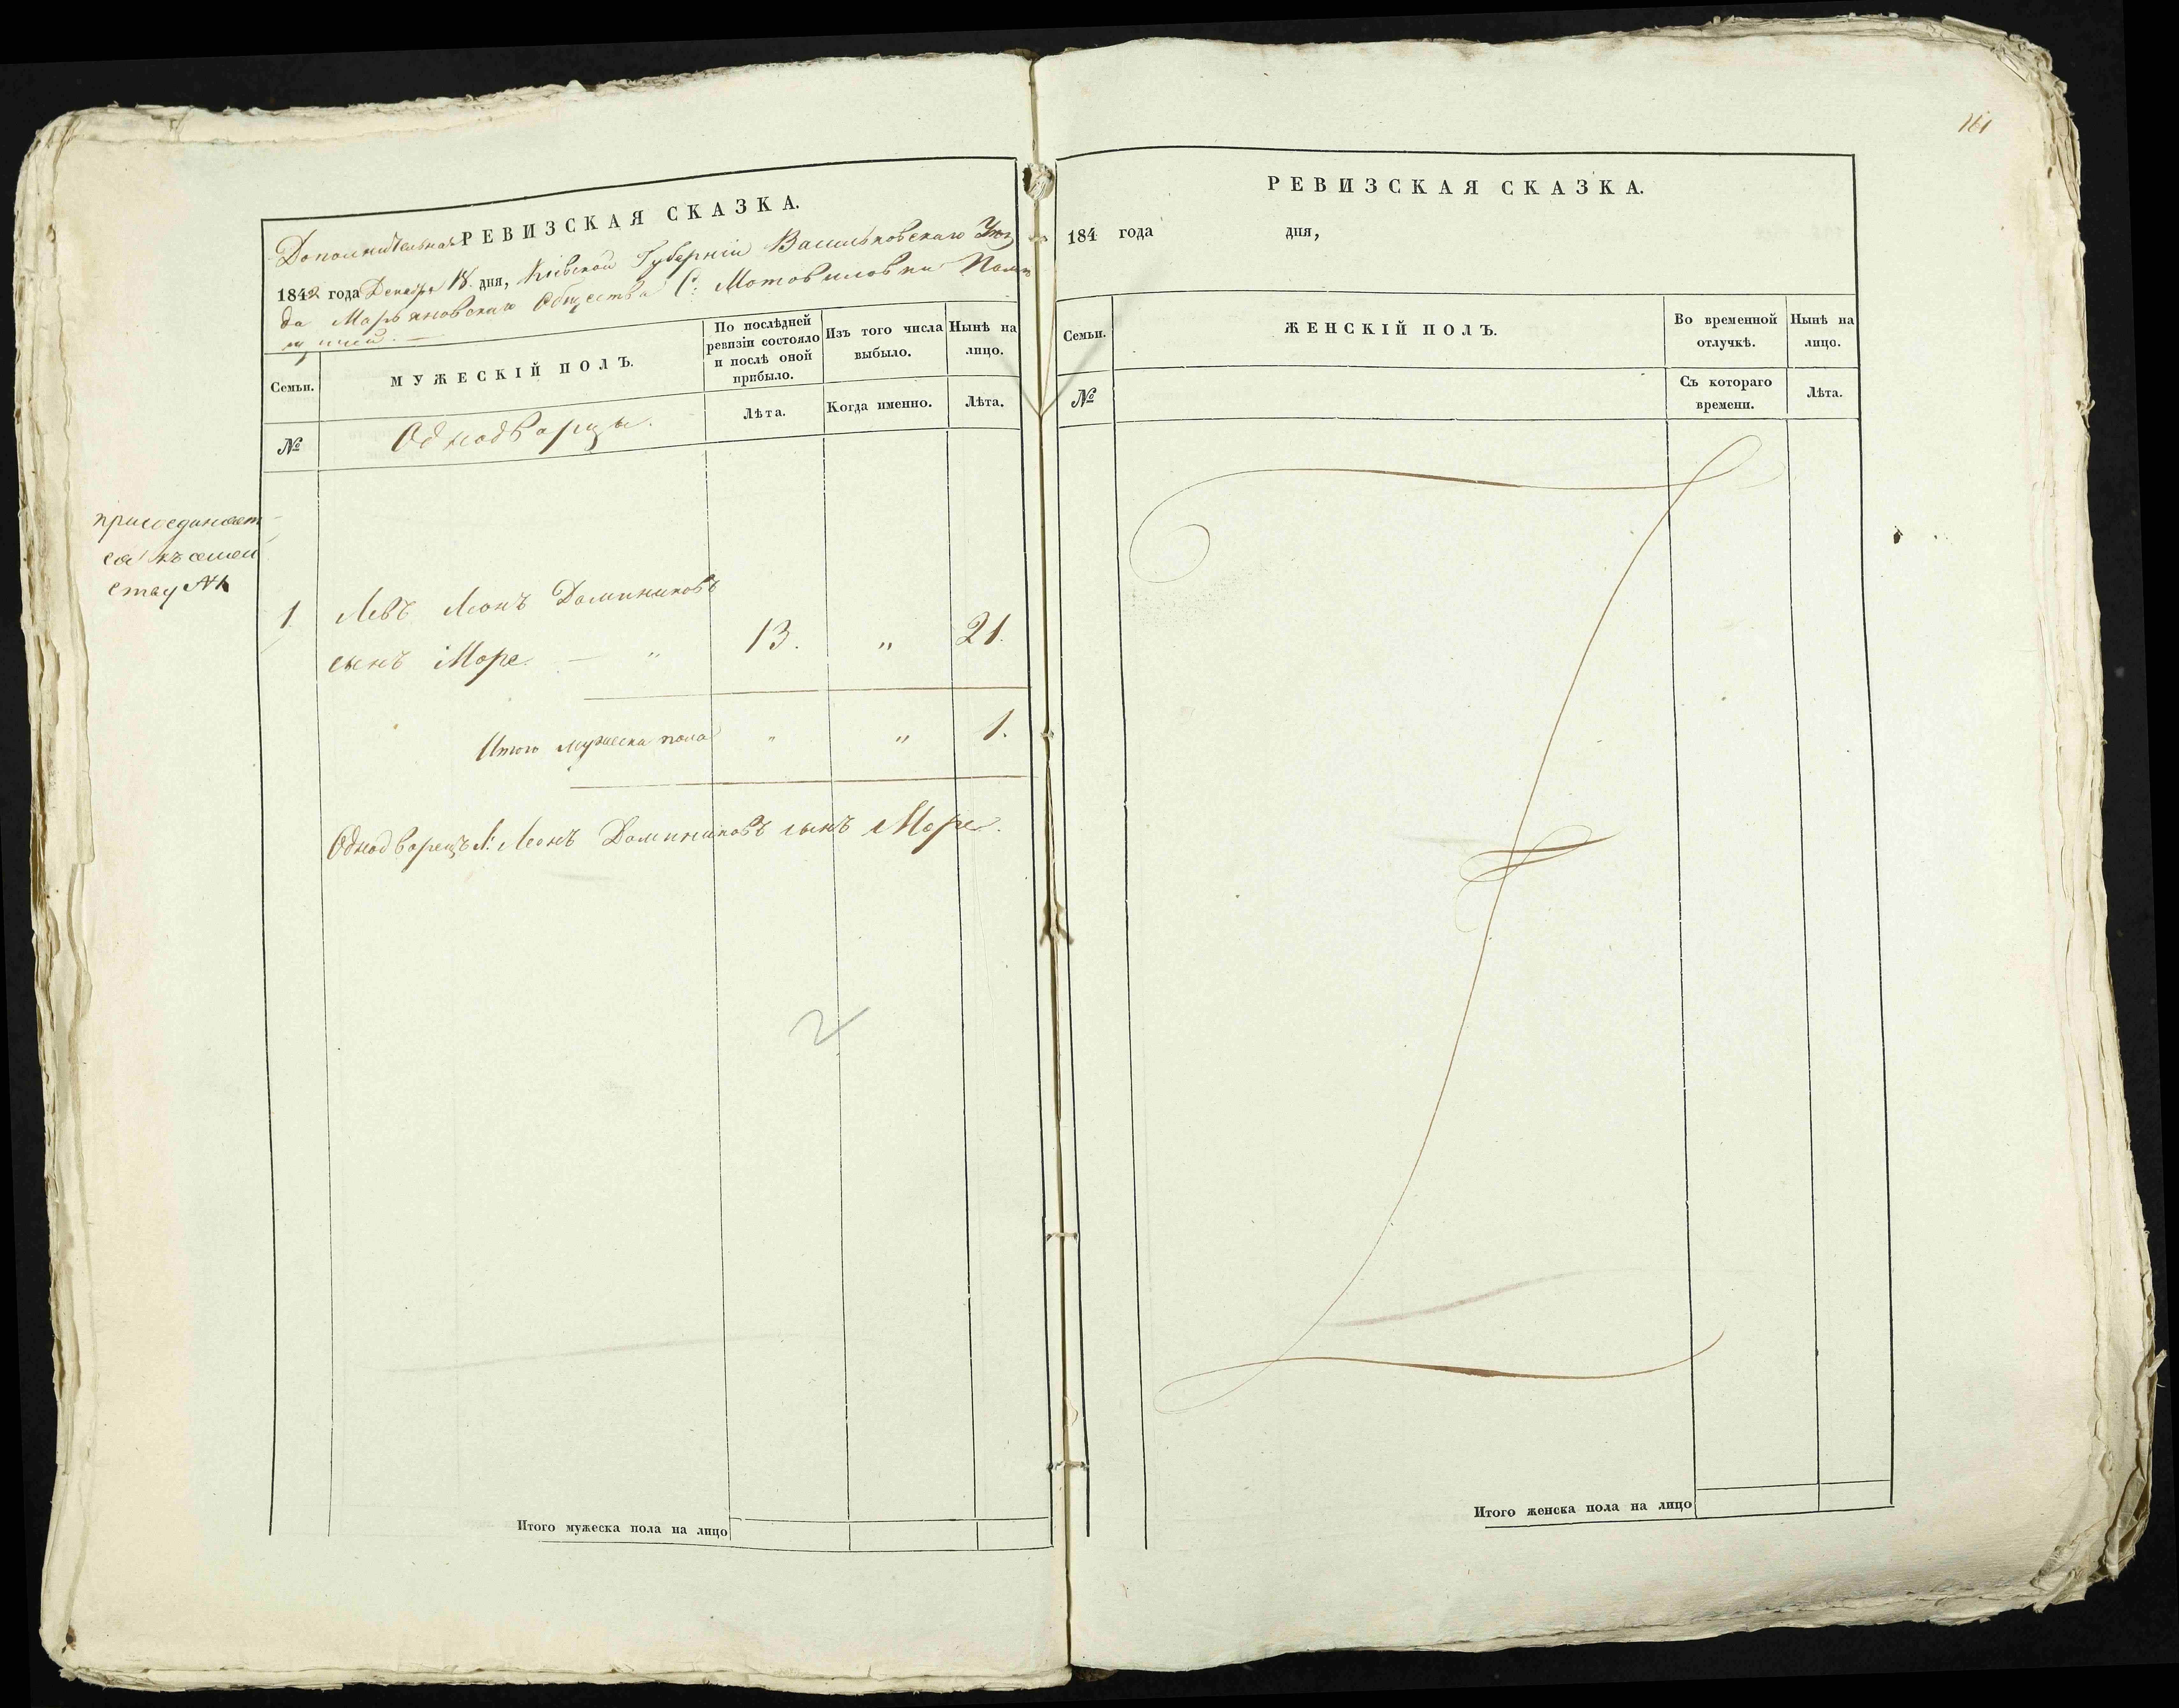 161
Дополнительная РЕВИЗСКАЯ СКАЗКА.
1842 года Декабря 18 дня, Кіевской Губерніи Васильковскаго Уѣз
да Марьяновскаго Общества С: Мотовиловки
Семьи.
МУЖЕСКІЙ ПОЛЪ.
По послѣдней ревизіи состояло и послѣ оной прибыло.
Изъ того числа выбыло.
Нынѣ на лицо.
№
Однодворцы.
Лѣта.
Когда именно.
Лѣта.
присоединяет
ся къ семей
ству №
1. Левъ Леонъ Доминиковъ
сынъ Море. — " 13. " 21.
Итого мужеска пола " " 1.
Однодворецъ Л: Леонъ Доминиковъ сынъ Море.
Итого мужеска пола на лицо
РЕВИЗСКАЯ СКАЗКА.
184 года дня,
Семьи.
ЖЕНСКІЙ ПОЛЪ.
Во временной отлучкѣ.
Нынѣ на лицо.
№
Съ котораго времени.
Лѣта.
Итого женска пола на лицо